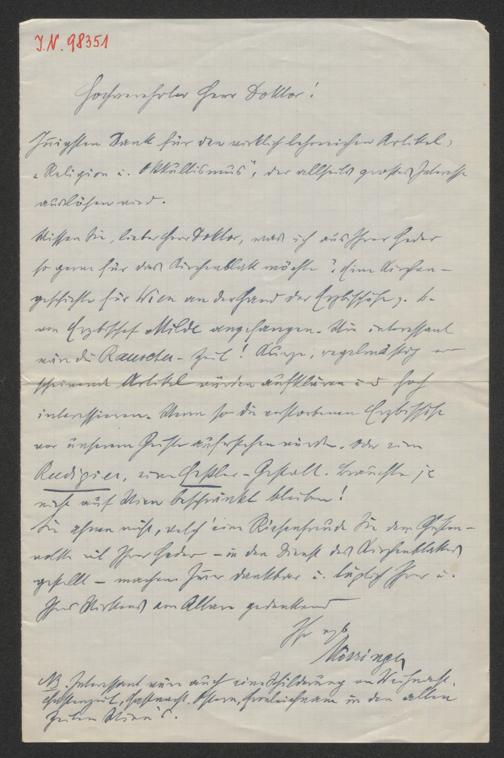 J.N. 98351
Hochverehrter Herr Doktor!
Innigsten Dank für den wirklich lehrreichen Artikel,
„Religion u. Okkultismus", der allseits großes Interesse
auslösen wird.
Wissen Sie, lieber Herr Doktor, was ich aus Ihrer Feder
so gerne für das Kirchenblatt möchte? Eine Kirchen-
geschichte für Wien an der Hand der Erzbischöfe, z. B.
von Erzbischof Milde angefangen. Wie interessant
wäre die Rauscher-Zeit! Kurze, regelmäßig er-
scheinende Artikel würden aufklären und hoch
interessieren. Wenn so die verstorbenen Erzbischöfe
vor unserem Geiste auferstehen würden. Oder eine
Rudigier, eine Gestalt. Brauchte ja
nicht auf Wien beschränkt bleiben!
Sie ahnen nicht, welch' eine Riesenfreude Sie dem
mit Ihrer Feder – in den Dienst des Kirchenblattes
gestellt – machen. Immer dankbar u. täglich Ihrer u.
Ihres Wirkens am Altare gedenkend
Ihr erg.
NB. Interessant wäre auch eine Schilderung von Weihnacht,
Fastenzeit, Fastnacht, Ostern, Fronleichnam in den alten
Zeiten Wien's.